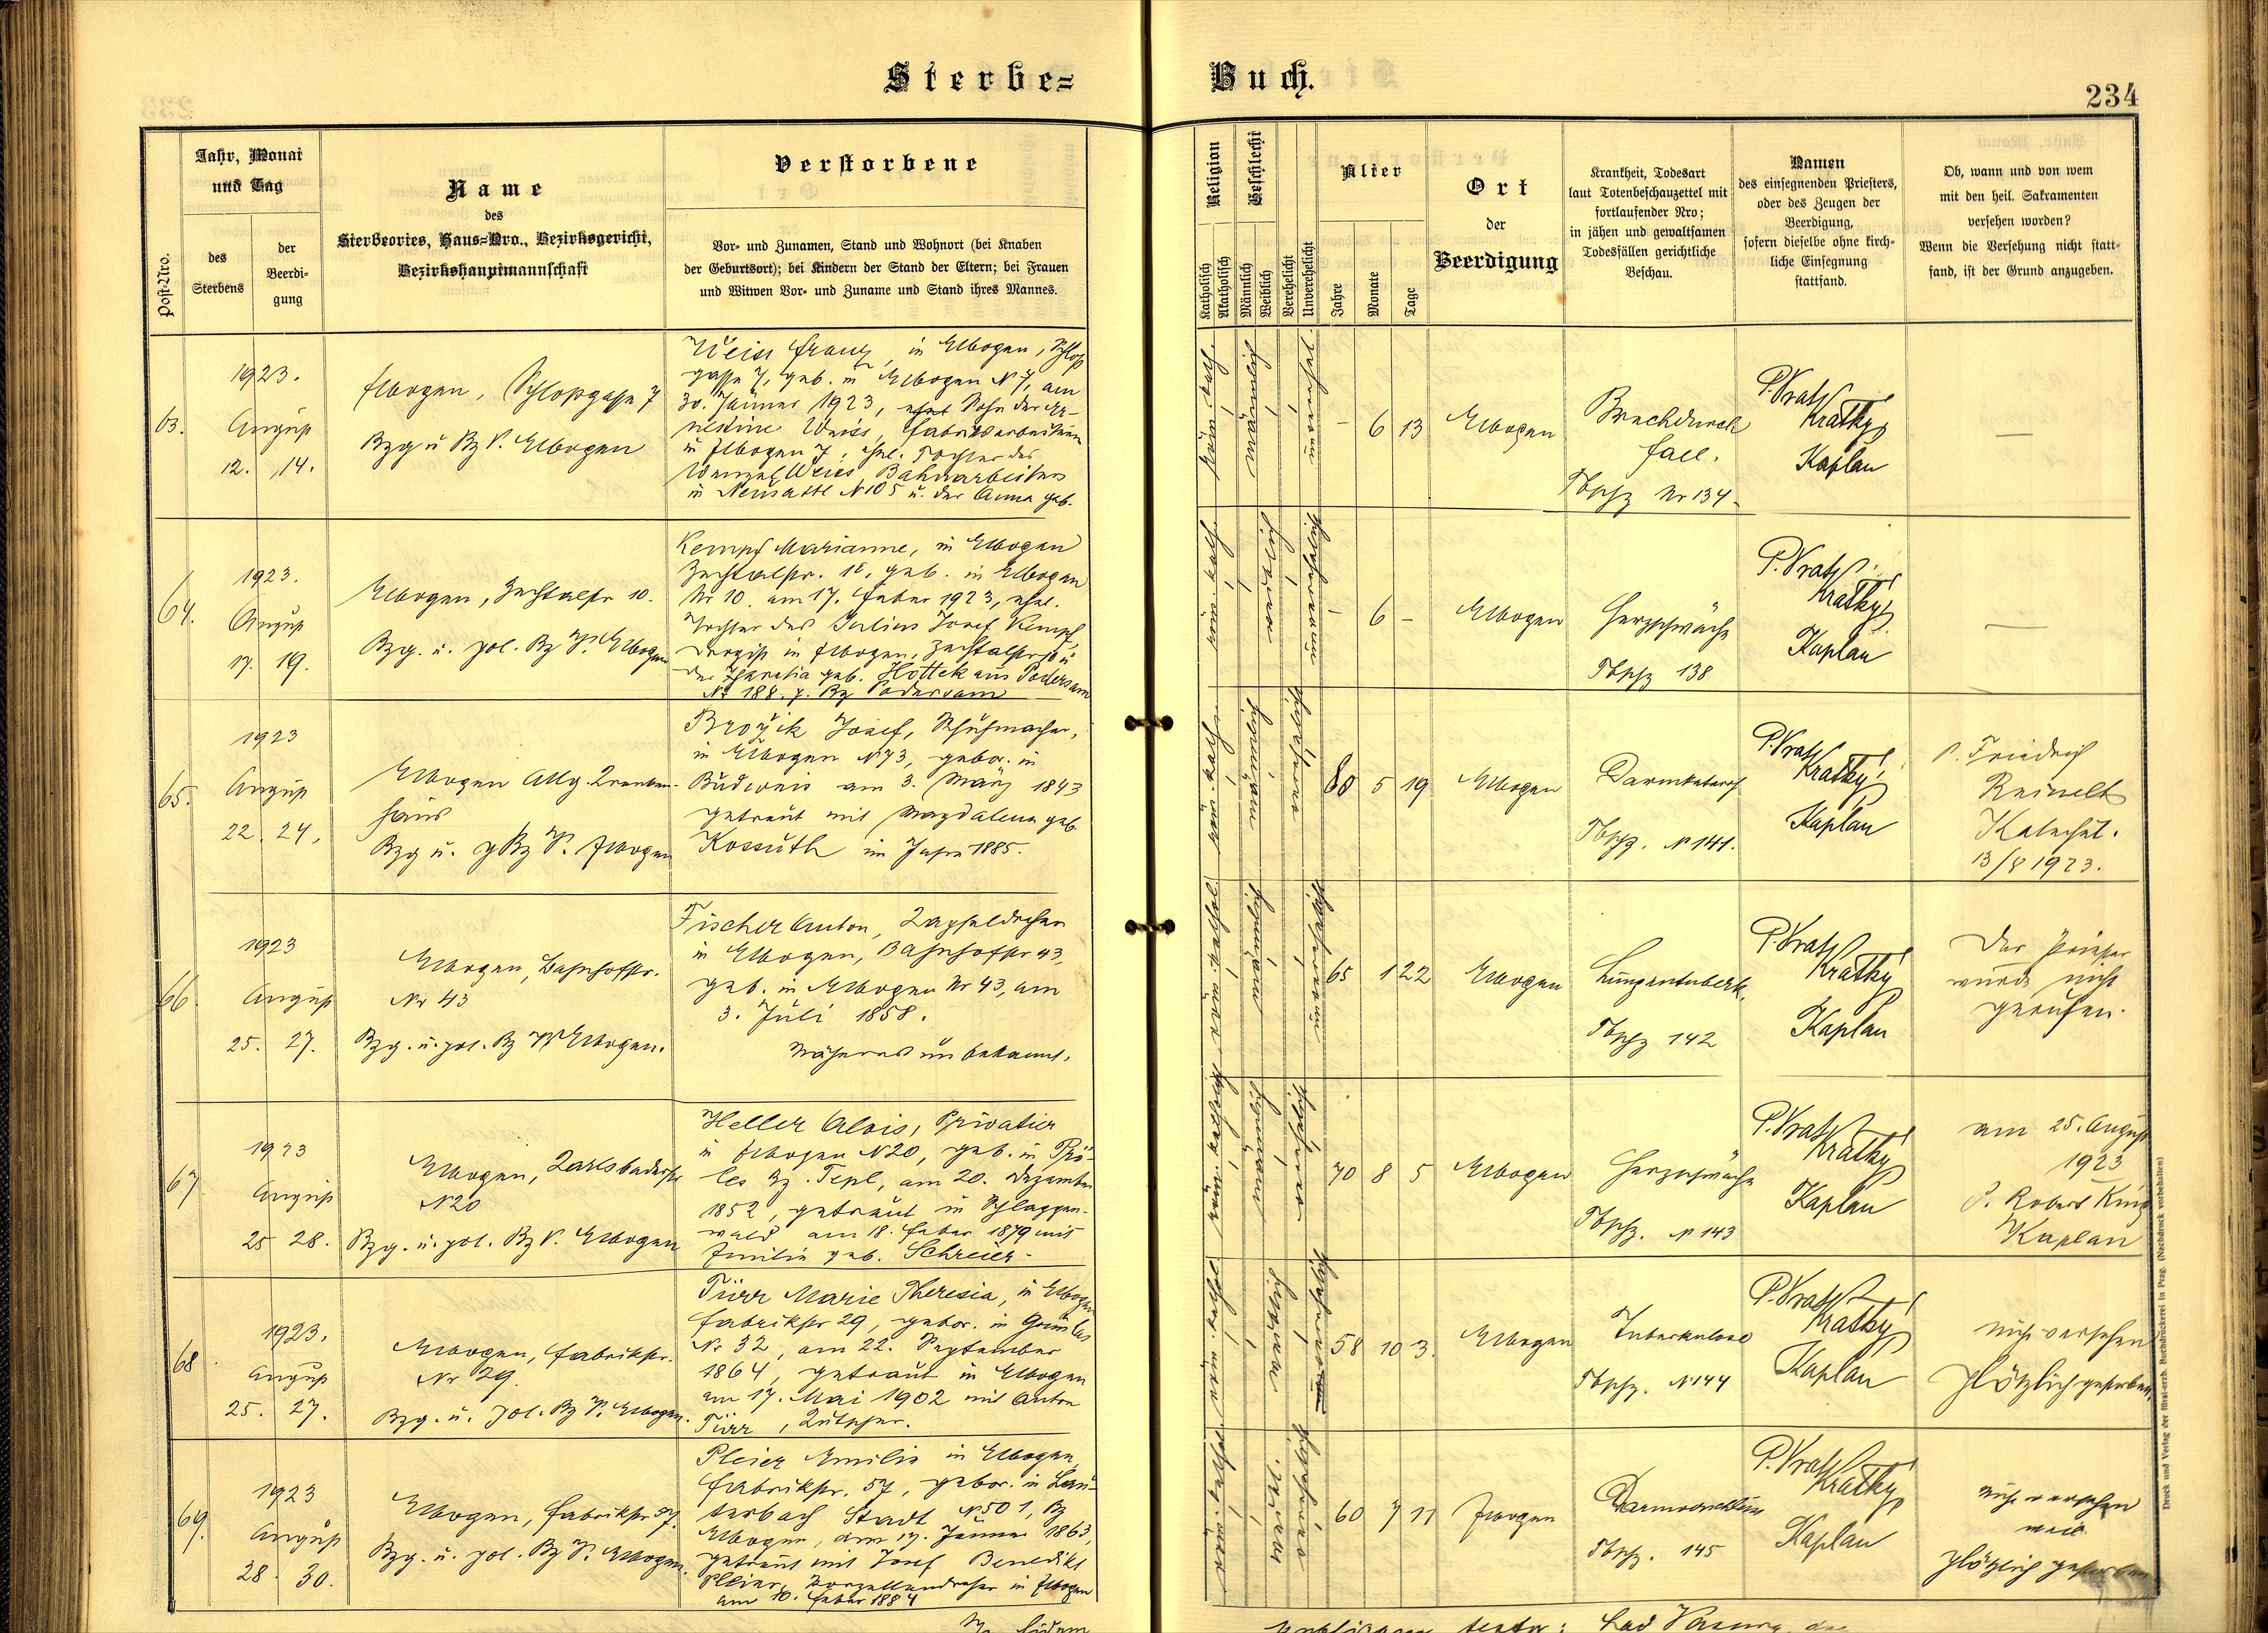 Sterbe=
Buch.
234
Post-Nro.
Jahr, Monat
und Tag
des
Sterbens
der
Beerdi-
gung
Name
des
Sterbeortes, Haus-Nro., Bezirksgericht,
Bezirkshauptmannschaft
Verstorbene
Vor- und Zunamen, Stand und Wohnort (bei Knaben
der Geburtsort); bei Kindern der Stand der Eltern; bei Frauen
und Witwen Vor- und Zuname und Stand ihres Mannes.
Religion
Katholisch
Akatholisch
Geschlecht
Männlich
Weiblich
Verehelicht
Unverehelicht
Alter
Jahre
Monate
Tage
Ort
der
Beerdigung
Krankheit, Todesart
laut Totenbeschauzettel mit
fortlaufender Nro;
in jähen und gewaltsamen
Todesfällen gerichtliche
Beschau.
Namen
des einsegnenden Priesters,
oder des Zeugen der
Beerdigung,
sofern dieselbe ohne kirch-
liche Einsegnung
stattfand.
Ob, wann und von wem
mit den heil. Sakramenten
versehen worden?
Wenn die Versehung nicht statt-
fand, ist der Grund anzugeben.
63.
1923.
August
12. 14.
Elbogen, Schloßgasse 7
Bzg u Bz V. Elbogen
Weiss Franz, in Elbogen, Schloß
gasse 7, geb. in Elbogen N 7, am
30. Jänner 1923, Sohn der Er-
nestine Weiss, Fabriksarbeiterin
in Elbogen 7, ehel. Tochter des
Wenzel Weiss Bahnarbeiters
in Neusattl N 105 u. der Anna geb.
röm. kath.
männl.
- 6 13
Elbogen
Brechdurch
fall.
Tbschz Nr 134
P. Vrat.
Krátký,
Kaplan
—
64.
1923.
August
17. 19.
Elbogen, Zechtalstr 10.
Bzg. u. pol. Bz V. Elbogen
Kempf Marianne, in Elbogen
Zechtalstr. 10, geb. in Elbogen
Nr 10. am 17. Feber 1923, ehel.
Tochter des Julius Josef Kempf,
Drogist in Elbogen, Zechtalstr 10 u
der Theresia geb. Hottek aus Podersam
No 188. p. Bz Podersam
röm. kath.
- 6 -
Elbogen
Herzschwäche
Tbschz 138
P. Vrat.
Krátký
Kaplan
—
65.
1923
August
22. 24.
Elbogen Allg. Kranken-
haus
Bzg u. p Bz V. Elbogen
Brožik Josef, Schuhmacher,
in Elbogen N 73, gebor. in
Budweis am 3. März 1843
getraut mit Magdalena geb.
Kossuth im Jahre 1885.
röm. kath.
80 5 19
Elbogen
Darmkatarrh
Tbschz. N 141.
P. Vrat.
Krátký
Kaplan
P. Friedrich
Reinelt
Katechet.
13/8 1923.
66.
1923
August
25. 27.
Elbogen, Bahnhofstr.
Nr 43
Bzg. u. pol. Bz V. Elbogen.
Fischer Anton, Kapseldreher
in Elbogen, Bahnhofstr 43,
geb. in Elbogen Nr 43, am
3. Juli 1858.
Näheres unbekannt.
65 1 22
Elbogen
Lungentuberk.
Tbschz 142
P. Vrat.
Krátký
Kaplan
Der Priester
wurde nicht
gerufen.
67
1923
August
25 28.
Elbogen, Karlsbaderstr
N 20
Bzg. u. pol. Bz V. Elbogen
Heller Alois, Privatier
in Elbogen N 20, geb. in Prö-
les Bz. Tepl, am 20. Dezember
1852, getraut in Schlaggen-
wald am 18. Feber 1879 mit
Emilie geb. Schreier.
70 8 5
Elbogen
Herzschwäche
Tbschz. N 143
P. Vrat.
Krátký
Kaplan
am 25. August
1923
P. Robert King
Kaplan
68.
1923.
August
25. 27.
Elbogen, Fabrikstr.
Nr 29.
Bzg. u. pol. Bz V. Elbogen.
Türr Marie Theresia, in Elbogen
Fabrikstr 29, gebor. in Grünlas
Nr 32, am 22. September
1864, getraut in Elbogen
am 17. Mai 1902 mit Anton
Türr, Kutscher.
58 10 3.
Elbogen
Tuberkulose
Tbschz. N 144
P. Vrat.
Krátký
Kaplan
nicht versehen
plötzlich gestorben.
69.
1923
August
28. 30.
Elbogen, Fabrikstr 57.
Bzg. u. pol. Bz V. Elbogen.
Pleier Emilie in Elbogen,
Fabrikstr. 57, gebor. in Lau-
terbach Stadt N 501, Bz
Elbogen, am 17. Jänner 1863,
getraut mit Josef Benedikt
Pleier, Porzellandreher in Elbogen
am 10. Feber 1884
60 7 11
Elbogen
Tbschz. 145
P. Vrat.
Krátký,
Kaplan
nicht versehen
weil
plötzlich gestorben
Druck und Verlag der fürst-erzb. Buchdruckerei in Prag. (Nachdruck vorbehalten)